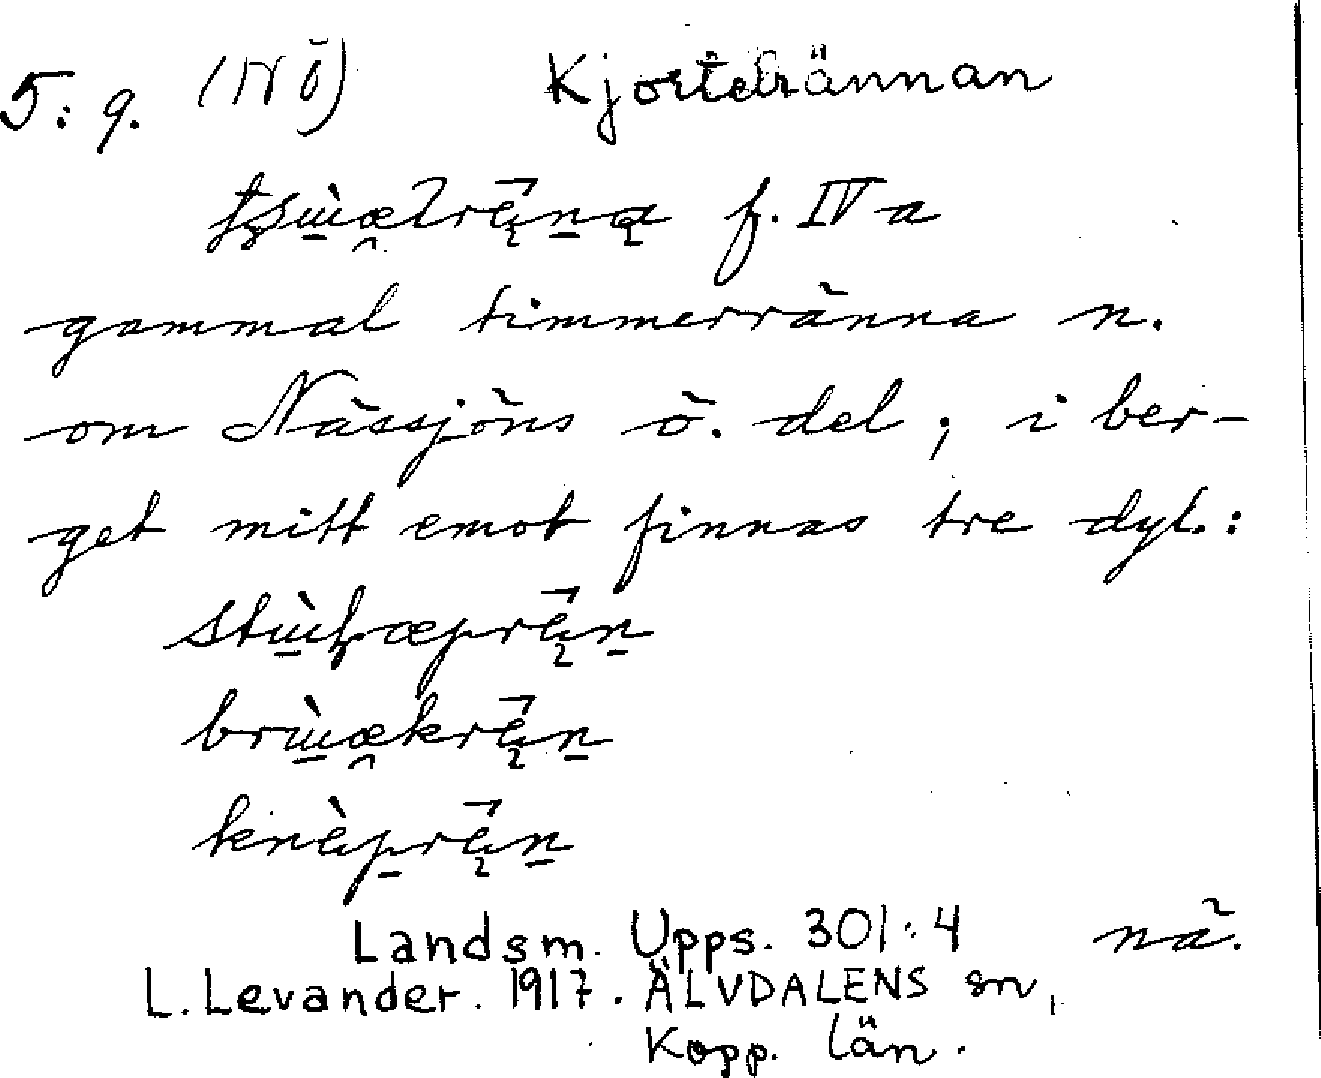 5:9. (NÖ) Kjortelrännan
f. IV a
gammal timmerränna n.
om Nässjöns ö. del; i ber-
get mitt emot finnas tre dyl.:
nä.
Landsm. Upps. 301:4
L. Levander. 1917. ÄLVDALENS sn,
Kopp. län.